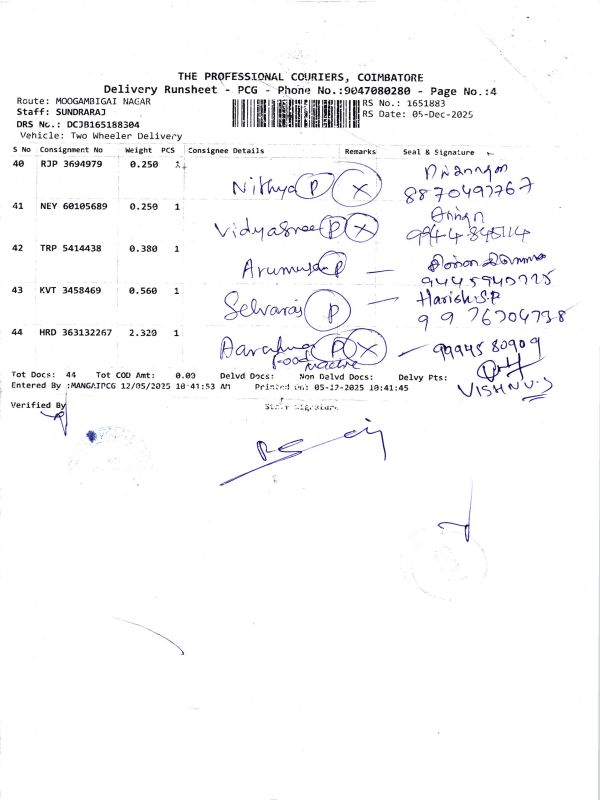 THE PROFESSIONAL COURIERS, COIMBATORE
Delivery Runsheet - PCG - Phone No.:9047080280 - Page No.:4
Route: MOOGAMBIGAI NAGAR RS No.: 1651883
Staff: SUNDRARAJ RS Date: 05-Dec-2025
DRS No.: DCJB165188304
Vehicle: Two Wheeler Delivery
S No Consignment No Weight PCS Consignee Details Remarks Seal & Signature
40 RJP 3694979 0.250 1
Nithya P X 8870497767
41 NEY 60105689 0.250 1
Vidyasree P X 9944845114
42 TRP 5414438 0.380 1
Arumuga P — 9445940725
43 KVT 3458469 0.560 1 Harish.S.P
Selvaraj P — 9976704738
44 HRD 363132267 2.320 1
P X — 9994580909
Food
Tot Docs: 44 Tot COD Amt: 0.00 Delvd Docs: Non Delvd Docs: Delvy Pts:
Entered By :MANGAIPCG 12/05/2025 10:41:53 AM Printed On: 05-12-2025 10:41:45
VISHNU.S
Verified By Staff Signature